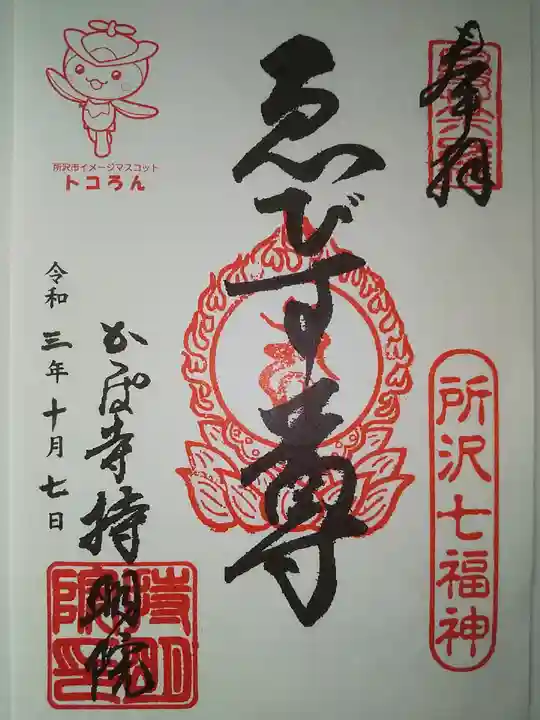 奉拝
所沢七福神
ゑびす尊
かっぱ寺持明院
令和三年十月七日
所沢市イメージマスコット
トコろん
持明院印